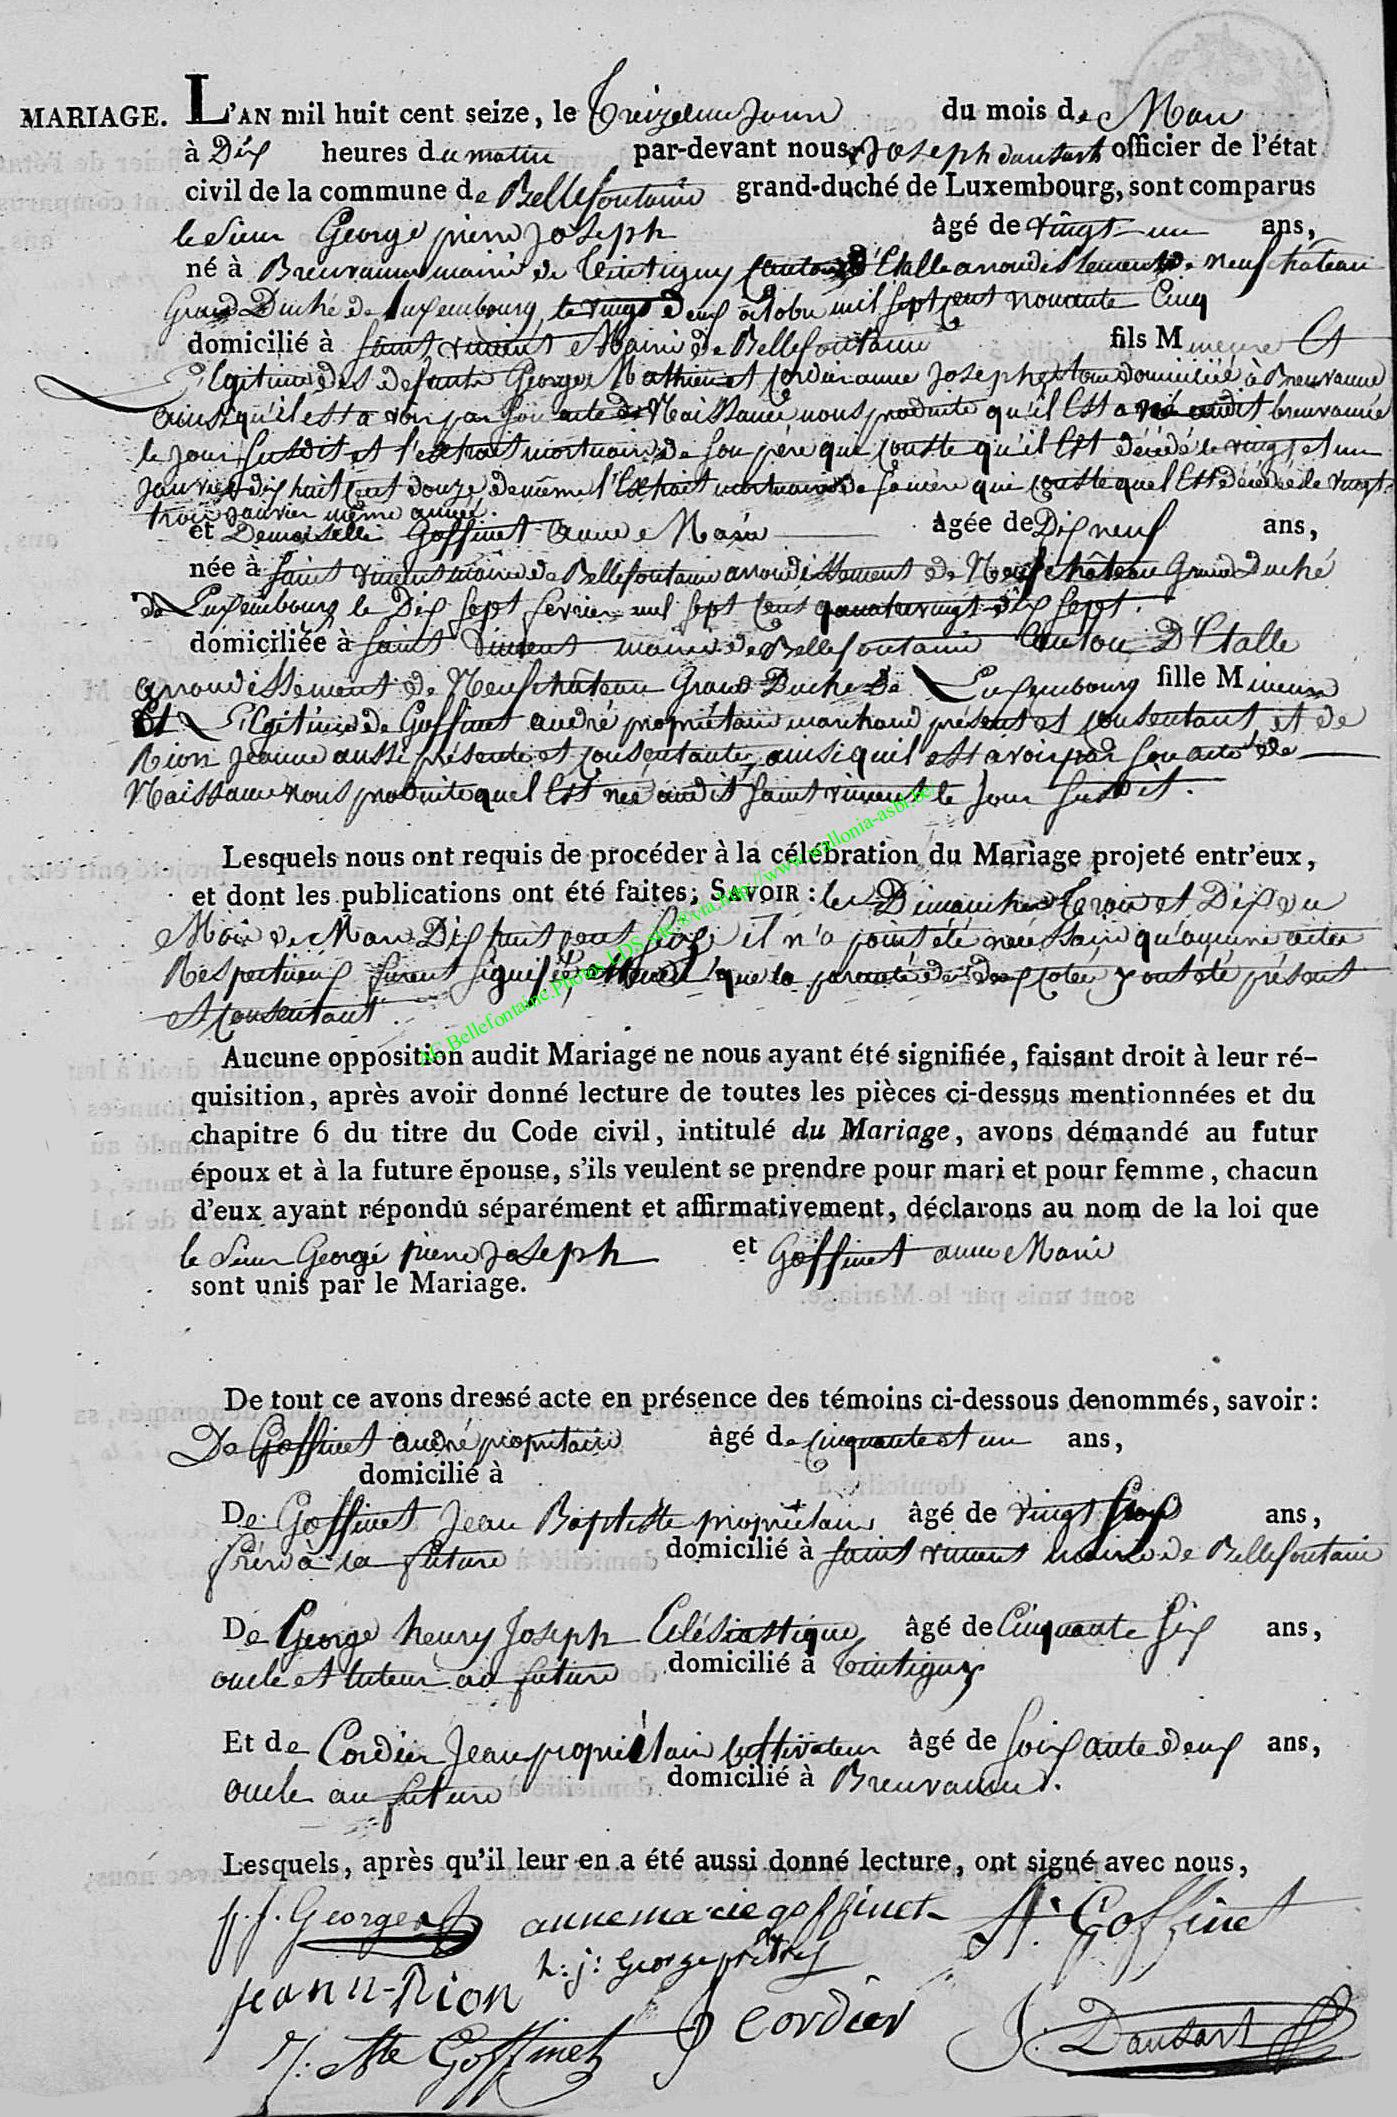 MARIAGE. L'AN mil huit cent seize, le treizieme Jour du mois de Mars
à Dix heures du matin par-devant nous Joseph dausart officier de l'état
civil de la commune de Bellefontaine grand-duché de Luxembourg, sont comparus
le Sieur George pierre Joseph âgé de vingt un ans,
né à Breuvanne mairie de Tintigny Canton d'Etalle arrondissement de neufchâteau
Grand Duché de Luxembourg le vingt deux octobre mil sept cent nonante Cinq
domicilié à saint vincent Mairie de Bellefontaine fils Mineure Et
Legitime des defunts George Mathieu et Cordier anne Joseph domicilié à Breuvanne
ainsi qu'il est a voir par son acte de Naissance nous produite qu'il Est né audit breuvanne
le Jour susdit et l'extrait mortuaire de son père qui conste qu'il Est décédé le vingt et un
Janvier dix huit Cent douze de même l'Extrait mortuaire de sa mère qui conste quel Est décédée le vingt-
trois Janvier même année.
et Demoiselle Goffinet anne Marie âgée de Dix neuf ans,
née à saint vincent mairie de Bellefontaine arrondissement de Neufchâteau Grand Duché
de Luxembourg le Dix sept fevrier mil sept Cent quatrevingt dix sept.
domiciliée à saint Vincent mairie de Bellefontaine Canton D'Etalle
arrondissement de Neufchâteau Grand Duché de Luxembourg fille Mineure
Et Legitime de Goffinet andré propriétaire marchand présent et consentant et de
Rion Jeanne aussi présente et consentante, ainsi quil est a voir par son acte de
Naissance nous produite quel Est née audit saint vincent le Jour susdit.
Lesquels nous ont requis de procéder à la célébration du Mariage projeté entr'eux,
et dont les publications ont été faites; SAVOIR : les Dimanches Trois et Dix du
Mois de Mars Dix huit cent seize il n'a point été nécessaire qu'aucune actes
Respectueux furent signifiés que la parenté des deux cotés y ont été présent
et consentant
AC Bellefontaine.Photos EDS-etc.®via http://www.wallonia-asbl.be/
Aucune opposition audit Mariage ne nous ayant été signifiée, faisant droit à leur ré-
quisition, après avoir donné lecture de toutes les pièces ci-dessus mentionnées et du
chapitre 6 du titre du Code civil, intitulé du Mariage, avons démandé au futur
époux et à la future épouse, s'ils veulent se prendre pour mari et pour femme, chacun
d'eux ayant répondu séparément et affirmativement, déclarons au nom de la loi que
le Sieur George pierre Joseph et Goffinet anne Marie
sont unis par le Mariage.
De tout ce avons dressé acte en présence des témoins ci-dessous denommés, savoir :
De Goffinet andré propritaire âgé de cinquante et un ans,
domicilié à
De Goffinet Jean Baptiste propriétaire âgé de vingt six ans,
frère à la future domicilié à saint vincent mairie de Bellefontaine
De George henry Joseph Eclésiastique âgé de Cinquante six ans,
oncle et tuteur au future domicilié à Tintigny
Et de Cordier Jean propriétaire cultivateur âgé de soixante deux ans,
oncle au future domicilié à Breuvanne.
Lesquels, après qu'il leur en a été aussi donné lecture, ont signé avec nous,
p. j. George anne marie goffinet A. Goffinet
h: j: George prêtre
jeann-Rion J cordier
J: Bte Goffinet J. Dausart